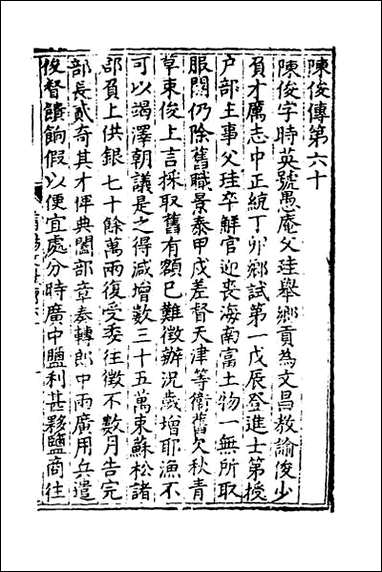 陳俊傳第六十
陳俊字時英號愚庵父珪舉鄉貢為文昌教諭俊少
負才厲志中正統丁卯鄉試第一戊辰登進士第授
户部主事父珪卒鮮官迎喪海南富土物一無所取
服闋仍除舊職景泰甲戌差督天津等衛舊欠秋青
草束俊上言採取舊有額已難徵辦況歲增耶漁不
可以竭澤朝議是之得減增數三十五萬束蘇松諸
郡負上供銀七十餘萬兩復受委往徵不數月告完
部長貳奇其才俾典闔部章奏轉郎中兩廣用兵遣
俊督饋餉假以便宜處分時廣中鹽利甚夥鹽商往